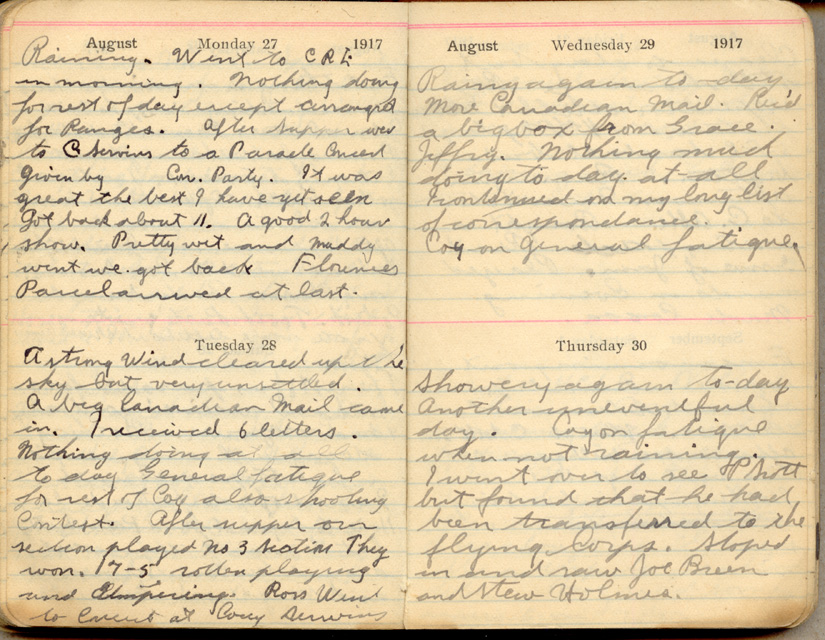 August Monday 27 1917
Raining. Went to C R E
in morning. Nothing doing
for rest of day except arranged
for Ranges. After supper went
to C Servins to a Parade Concert
given by Con. Party. It was
great the best I have yet seen
Got back about 11. A good 2 hour
show. Pretty wet and muddy
went we got back Florences
Parcel arrived at last.
Tuesday 28
A strong Wind cleared up the
sky but very unsettled.
A big Canadian Mail came
in. I received 6 letters.
Nothing doing at all
to day General fatigue
for rest of Coy also shooting
Contest. After supper our
section played No 3 section They
won. 17-5 rotten playing
and Umpiring. Ross Went
to Concert at Servins
August Wednesday 29 1917
Raing again to-day
More Canadian Mail. Rec'd
a big box from Grace.
Jeffry. Nothing much
doing to day. at-all
I continued on my long list
of correspondance.
Coy on General fatigue.
Thursday 30
Showery again to-day
Another uneventful
day. Coy on fatigue
when not raining.
I went over to see P Nott
but found that he had
been transferred to the
flying Corps. Stoped
in and saw Joe Breen
and Stew Holmes.